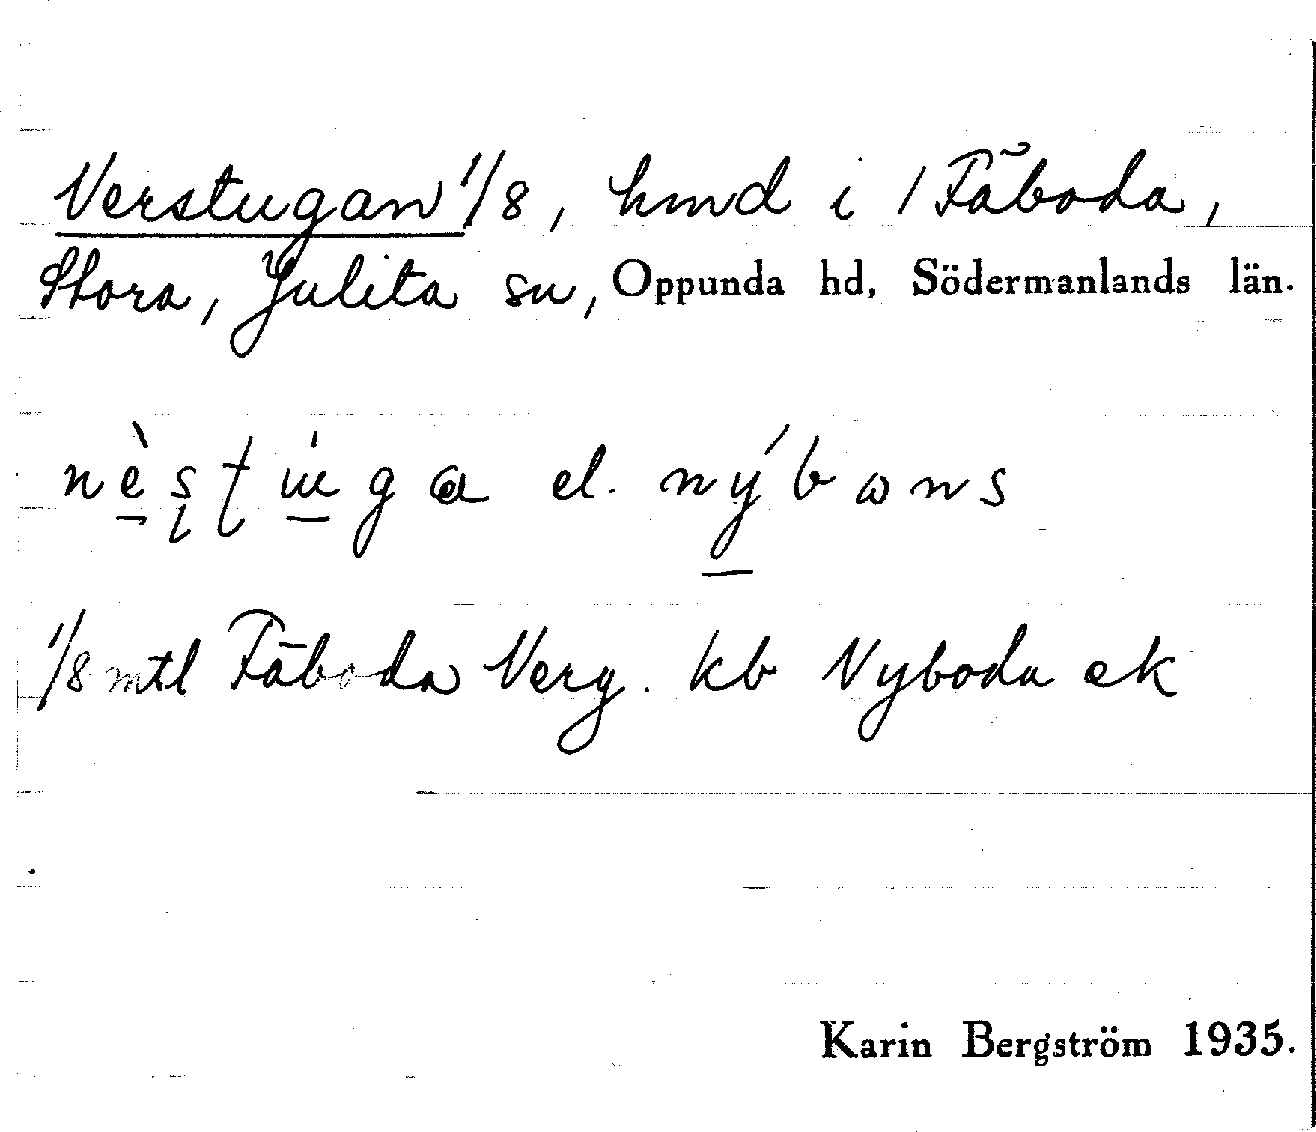 Verstugan 1/8, hmd i / Fäboda,
Stora, Julita sn, Oppunda hd, Södermanlands län.
el.
1/8 mtl Fäboda Verg. kb Nyboda ek
Karin Bergström 1935.